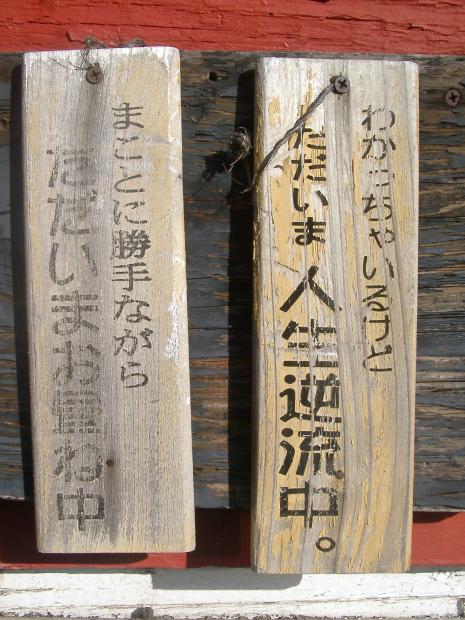 わかっちゃいるけど
ただいま 人生逆流中。
まことに勝手ながら
ただいまお昼ね中